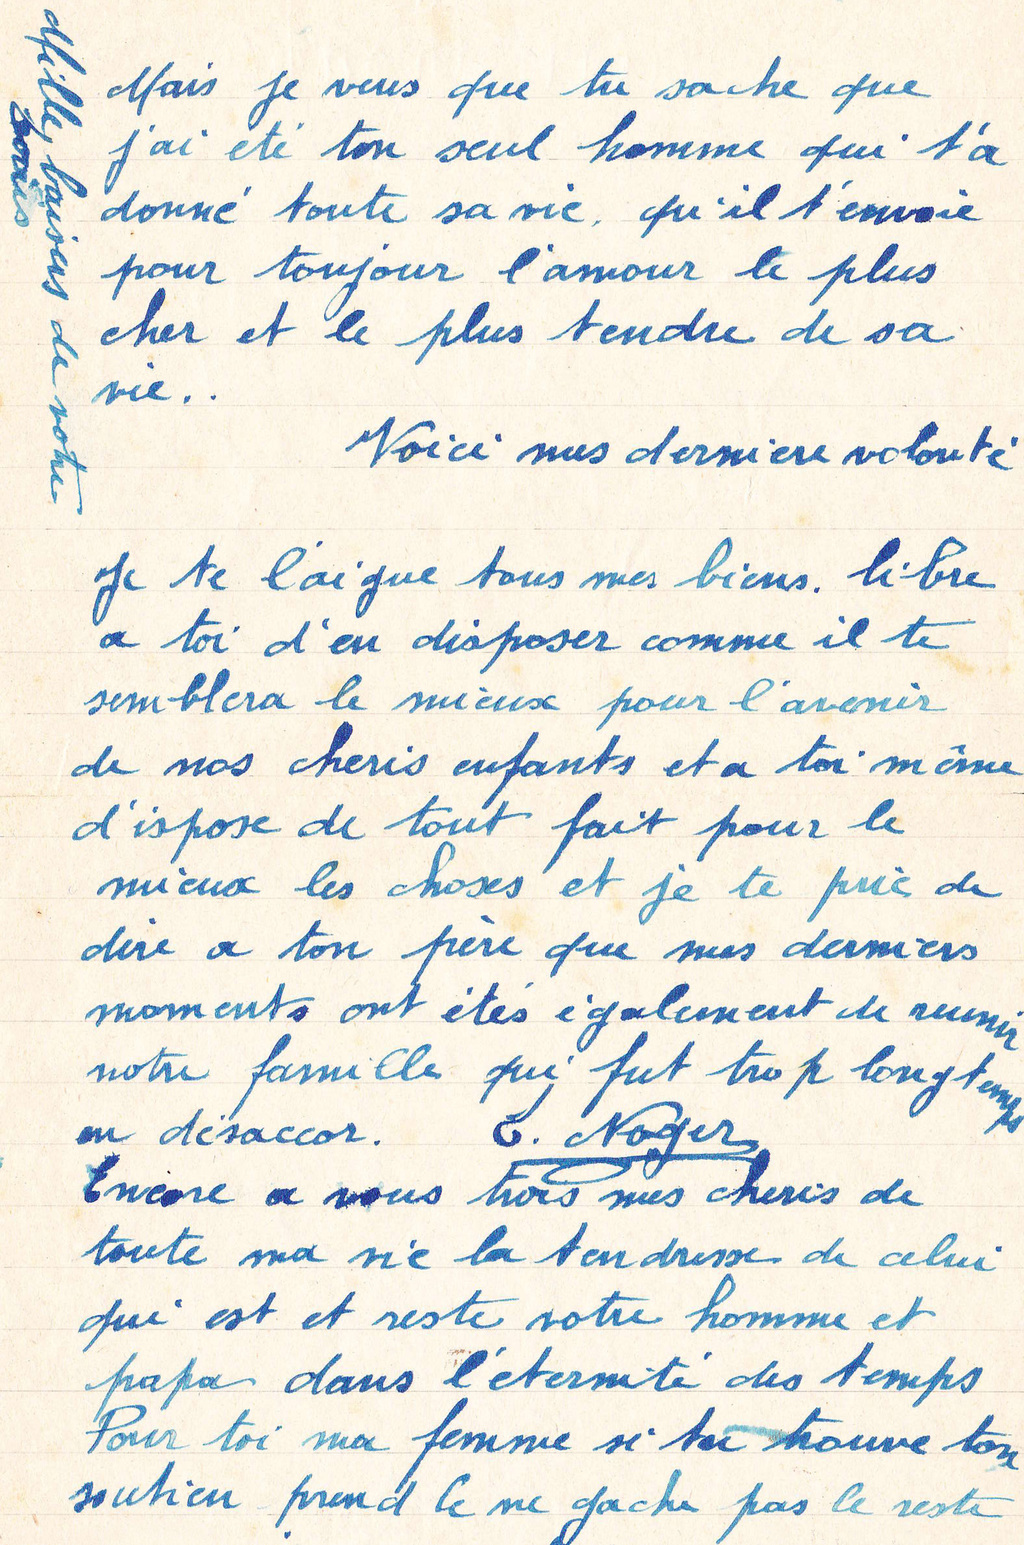 Mais je veus que tu sache que
j'ai eté ton seul homme qui t'a
donné toute sa vie, qu'il t'envoie
pour toujour l'amour le plus
cher et le plus tendre de sa
vie..
Voici mes derniere volonté
Je te l'aigue tous mes biens. libre
a toi d'en disposer comme il te
semblera le mieux pour l'avenir
de nos cheris enfants et a toi même
d'ispose de tout fait pour le
mieux les choses et je te prie de
dire a ton père que mes derniers
moments ont étés également de reunir
notre famille qui fut trop longtemps
en désaccor. E. Noger
Encore a vous trois mes cheris de
toute ma vie la tendresse de celui
qui est et reste votre homme et
papa dans l'éternité des temps
Pour toi ma femme si tu trouve ton
soutien prend le ne gache pas le reste
Mille baisers de votre